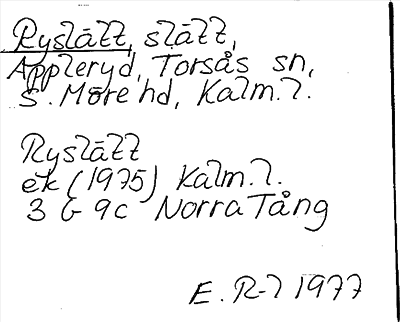 Ryslätt, slätt,
Appleryd, Torsås sn,
S. Möre hd, Kalm. l.
Ryslätt
ek (1975) Kalm. l.
3 G 9c Norra Tång
E. R-l 1977